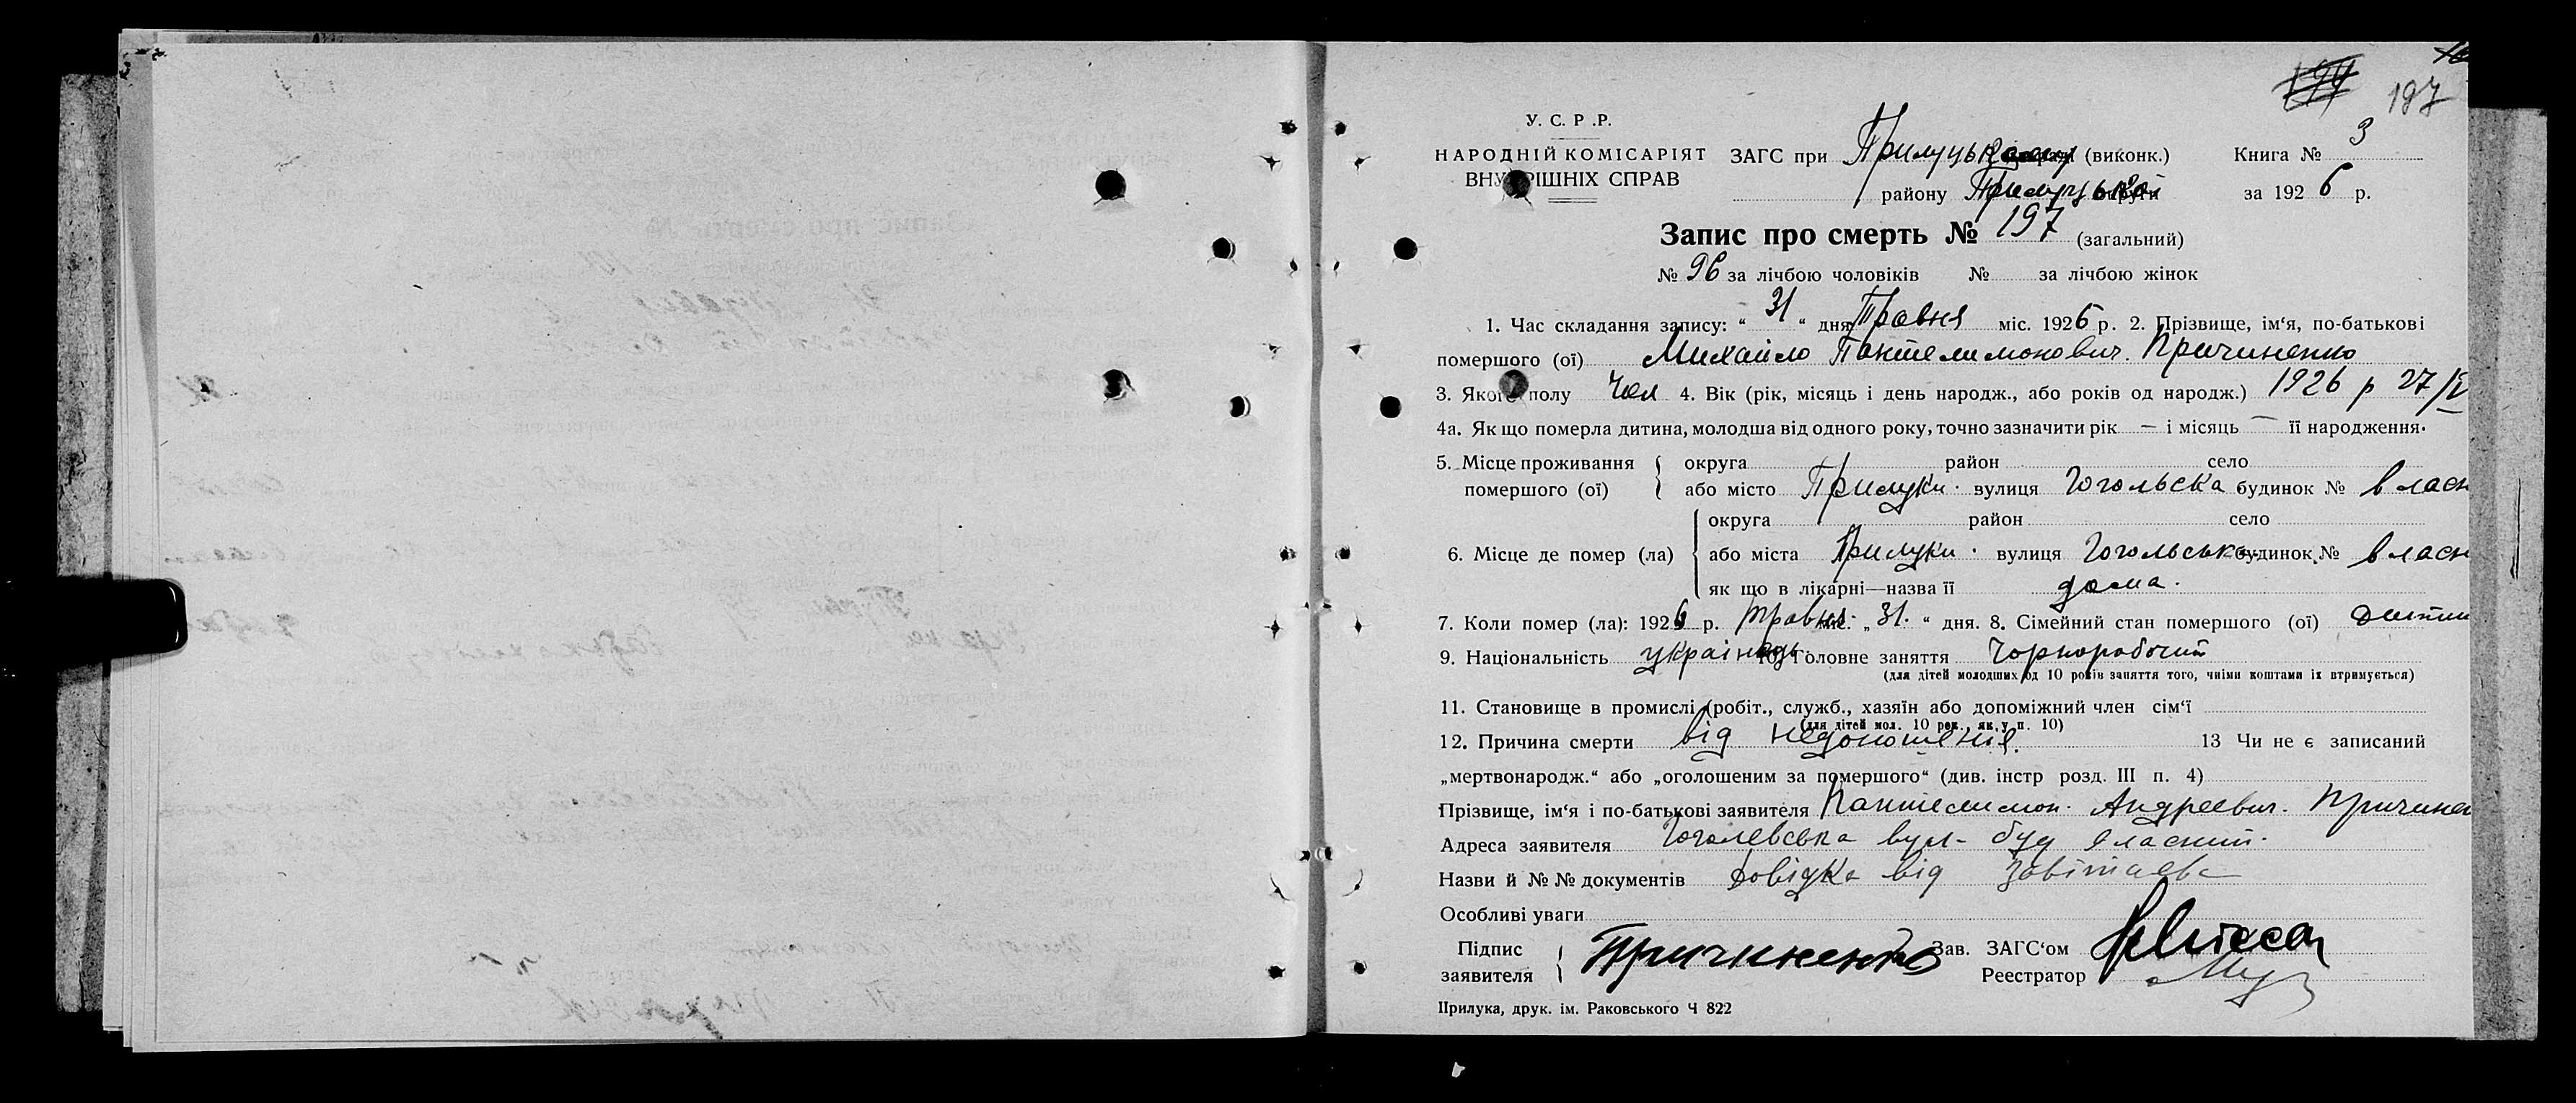 197
У. С. Р. Р.
НАРОДНІЙ КОМІСАРІЯТ ВНУТРІШНІХ СПРАВ
ЗАГС при Прилуцькому (виконк.) Книга № 3
району Прилуцької округи за 1926 р.
Запис про смерть № 197 (загальний)
№ 96 за лічбою чоловіків № за лічбою жінок
1. Час складання запису: " 31 " дня Травня міс. 1926 р. 2. Прізвище, ім'я, по-батькові
помершого (ої) Михайло Пантелимонович Причиненко
3. Якого полу Чол 4. Вік (рік, місяць і день народж., або років од народж.) 1926 р 27/V
4а. Як що померла дитина, молодша від одного року, точно зазначити рік — і місяць — її народження.
5. Місце проживання помершого (ої) { округа район село
або місто Прилуки. вулиця Гогольска будинок № власн
6. Місце де помер (ла) { округа район село
або міста Прилуки. вулиця Гогольська будинок № власн
як що в лікарні—назва її дома.
7. Коли помер (ла): 1926 р. Травня міс. „ 31. " дня. 8. Сімейний стан помершого (ої) дитин
9. Національність українець 10. Головне заняття Чорноробочий
(для дітей молодших од 10 років заняття того, чиїми коштами їх втримується)
11. Становище в промислі (робіт., служб., хазяїн або допоміжний член сім'ї
(для дітей мол. 10 рок., як у п. 10)
12. Причина смерти від недоношенія. 13 Чи не є записаний
„мертвонародж." або „оголошеним за помершого" (див. інстр розд. III п. 4)
Прізвище, ім'я і по-батькові заявителя Пантелимон. Андреевич. Причинен
Адреса заявителя Гоголевська вул- буд власний.
Назви й №№ документів Довідка від
Особливі уваги
Підпис заявителя { Причиненко Зав. ЗАГС'ом
Реестратор
Прилука, друк. ім. Раковського Ч 822